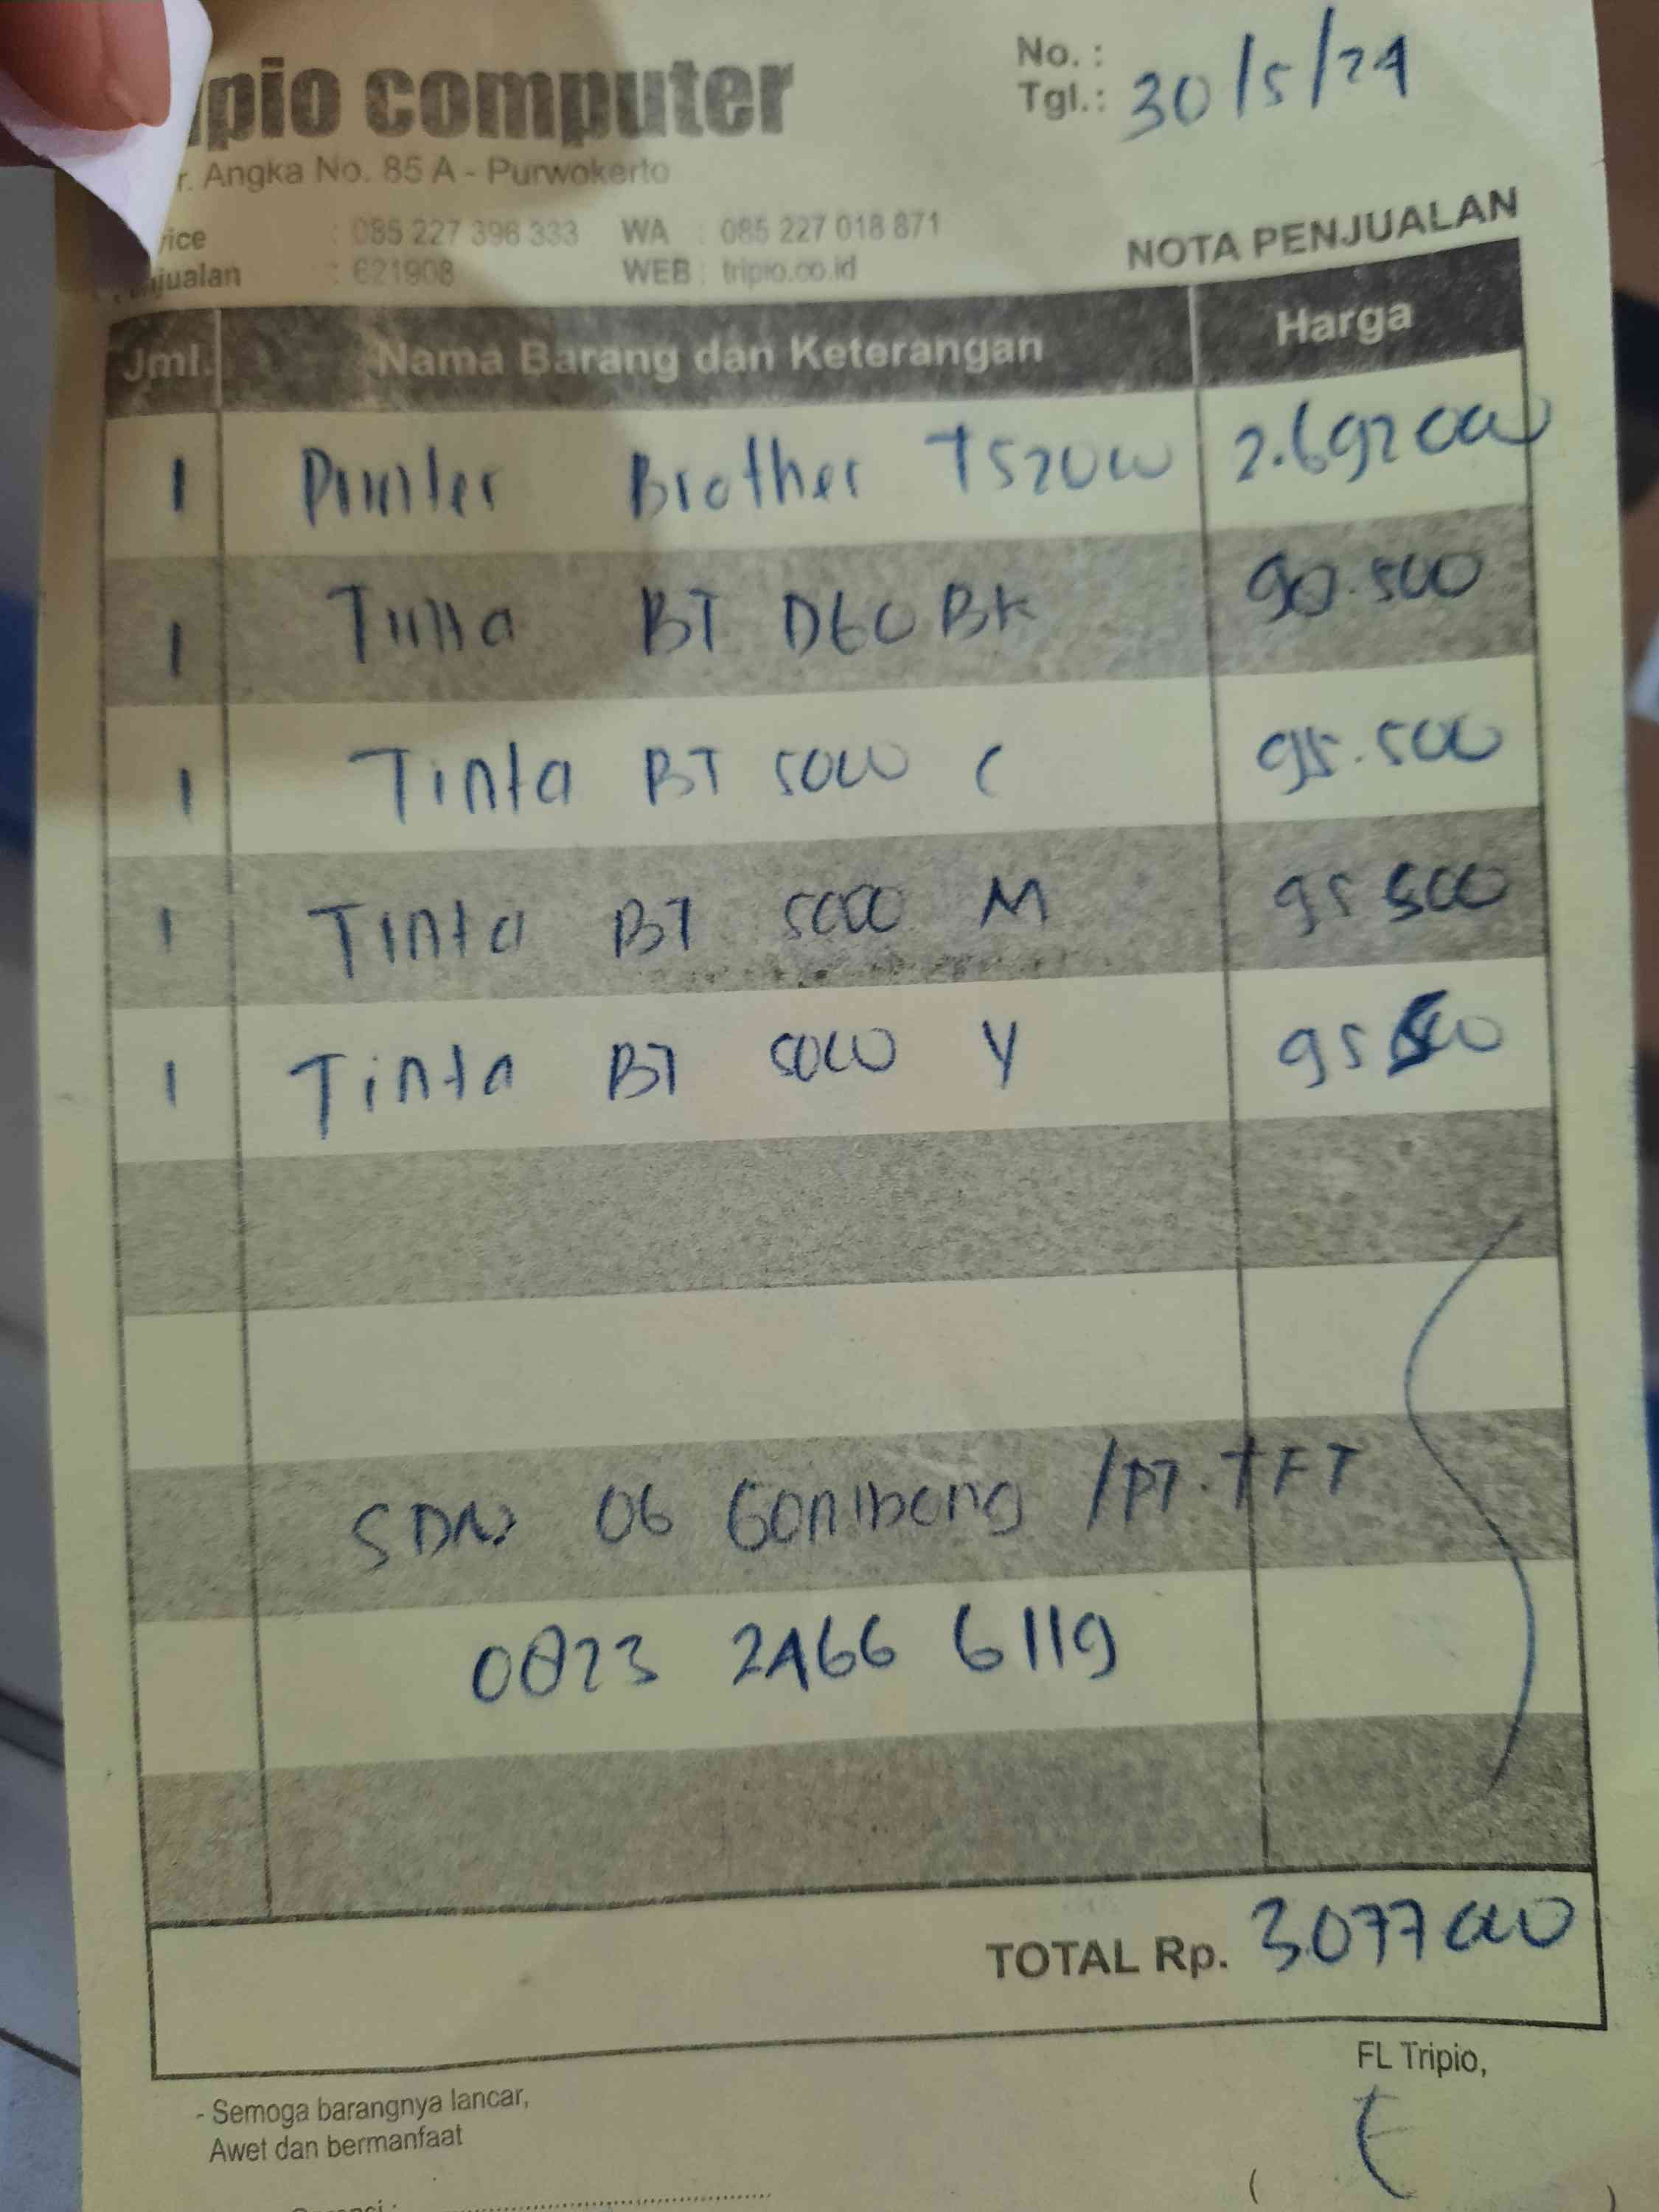 pio computer
No. :
Tgl.: 30/5/24
r. Angka No. 85 A - Purwokerto
: 085 227 396 333 WA : 085 227 018 871
jualan : 621908 WEB : tripio.co.id
NOTA PENJUALAN
Jml. Nama Barang dan Keterangan Harga
1 Printer Brother T520W 2.692000
1 Tinta BT D60 BK 90.500
1 Tinta BT 5000 C 95.500
1 Tinta BT 5000 M 95 500
1 Tinta BT 5000 Y 95 500
SDN 06 Gombong /PT. TFT
0823 2466 6119
TOTAL Rp. 3.077 000
FL Tripio,
- Semoga barangnya lancar,
Awet dan bermanfaat